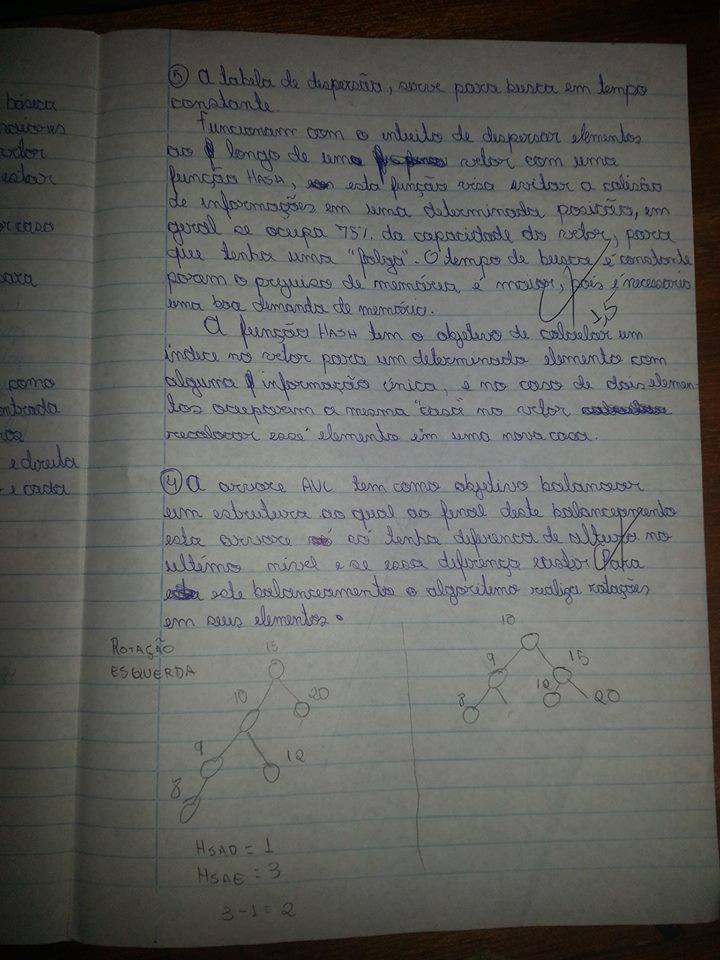 básica
maiores
vetor
estar
or caso
para
como
ontrada
ros
e direita
e cada
⑤ A tabela de dispersão, serve para busca em tempo
constante.
Funcionam com o intuito de dispersar elementos
ao longo de um vetor com uma
função HASH, esta função visa evitar a colisão
de informações em uma determinada posição, em
geral se ocupa 75% da capacidade do vetor, para
que tenha uma "folga". O tempo de busca é constante
porem o prejuiso de memória é maior, pois é necessario
uma boa demanda de memória.
1,5
A função HASH tem o objetivo de calcular um
índice no vetor para um determinado elemento com
alguma informação única, e no caso de dois elemen-
tos ocuparem a mesma "casa" no vetor
recolocar esse elemento em uma nova casa.
④ A arvore AVL tem como objetivo balancear
em estrutura ao qual ao final deste balanceamento
esta arvore só tenha diferença de altura no
ultimo nivel e se essa diferença existir. Para
este balanceamento o algoritimo realiza rotações
em seus elementos.
ROTAÇÃO
ESQUERDA
15
10
20
9
12
8
10
9
15
8
10
20
HSAD = 1
HSAE = 3
3-1=2